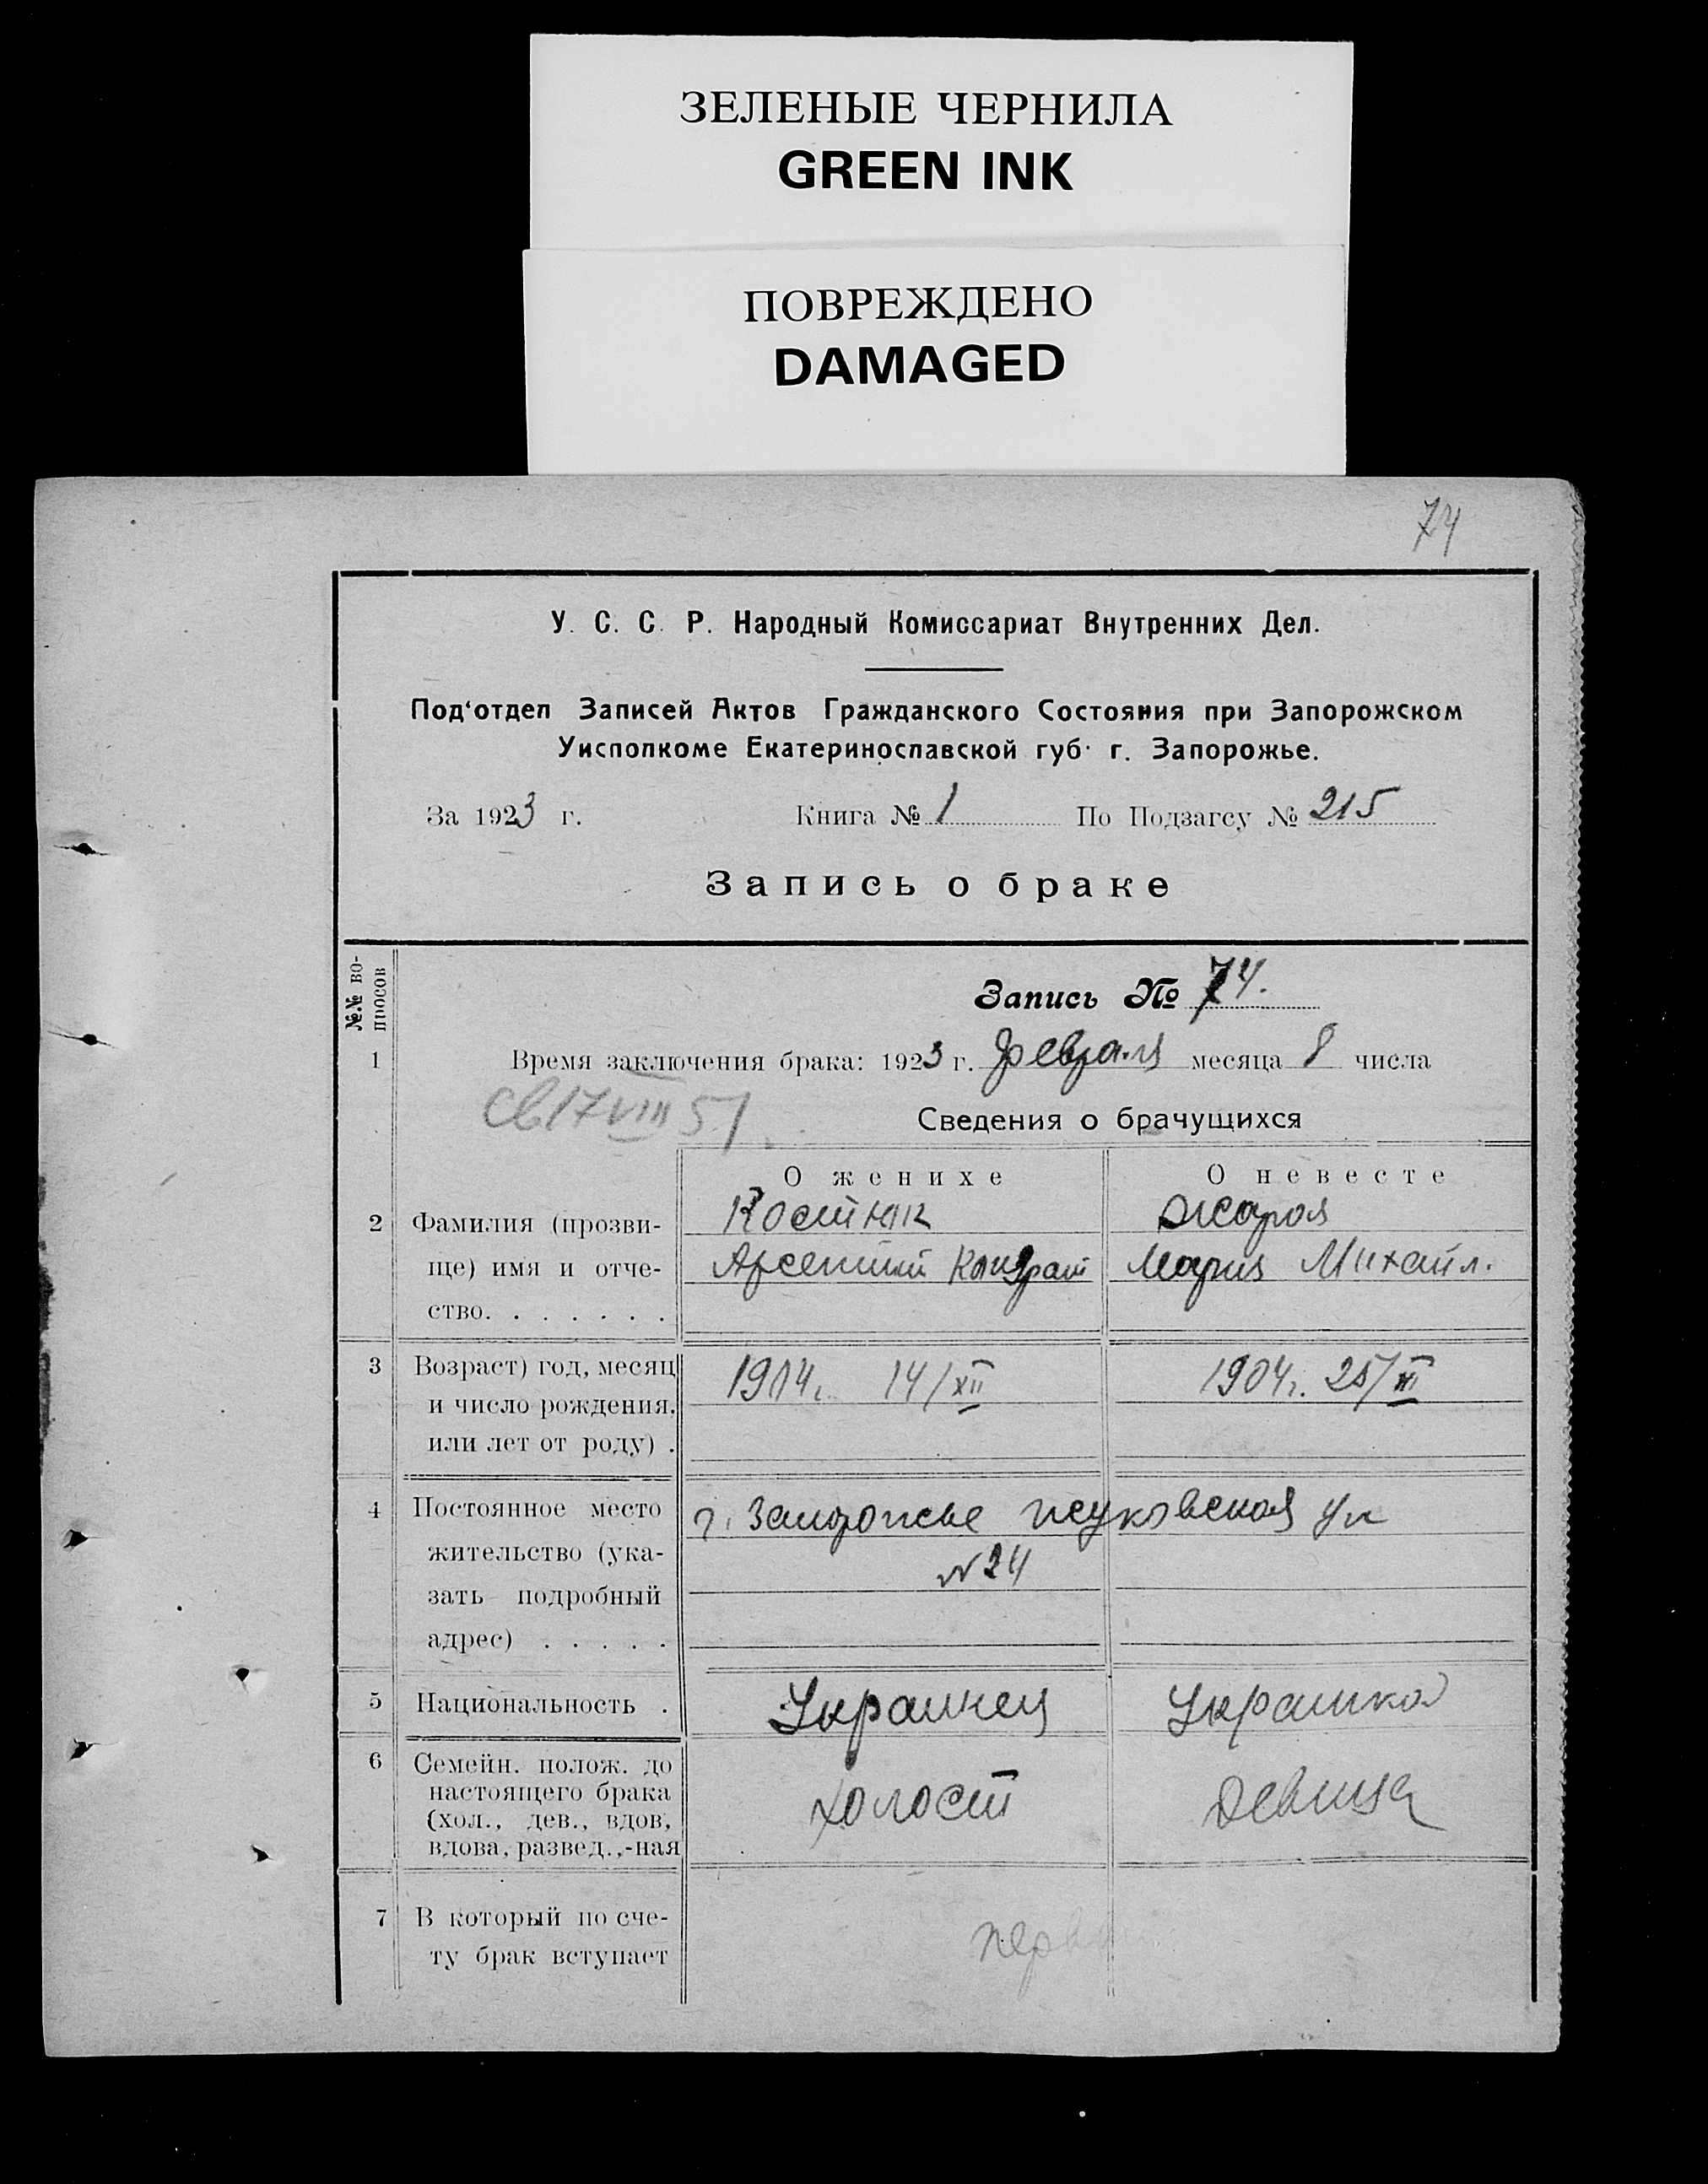 ЗЕЛЕНЫЕ ЧЕРНИЛА
GREEN INK
ПОВРЕЖДЕНО
DAMAGED
74
У. С. С. Р. Народный Комиссариат Внутренних Дел.
Под‘отдел Записей Актов Гражданского Состояния при Запорожском
Уисполкоме Екатеринославской губ. г. Запорожье.
За 1923 г. Книга № 1 По Подзагсу № 215
Запись о браке
№.№ во-
просов
Запись № 74.
1 Время заключения брака: 1923 г. Февраля месяца 8 числа
Св 17 VIII 51
Сведения о брачущихся
О женихе О невесте
2 Фамилия (прозви- Костюк
ще) имя и отче- Арсентий Кондрат Мария Михайл.
ство. . . . . . .
3 Возраст) год, месяц 1904г. 14/XII 1904г. 25/III
и число рождения.
или лет от роду) .
4 Постоянное место г. Запорожье Жуковская ул
жительство (ука- № 24
зать подробный
адрес) . . . . .
5 Национальность . Украинец Украинка
6 Семейн. полож. до
настоящего брака
(хол., дев., вдов, холост девица
вдова, развед.,-ная
7 В который по сче-
ту брак вступает